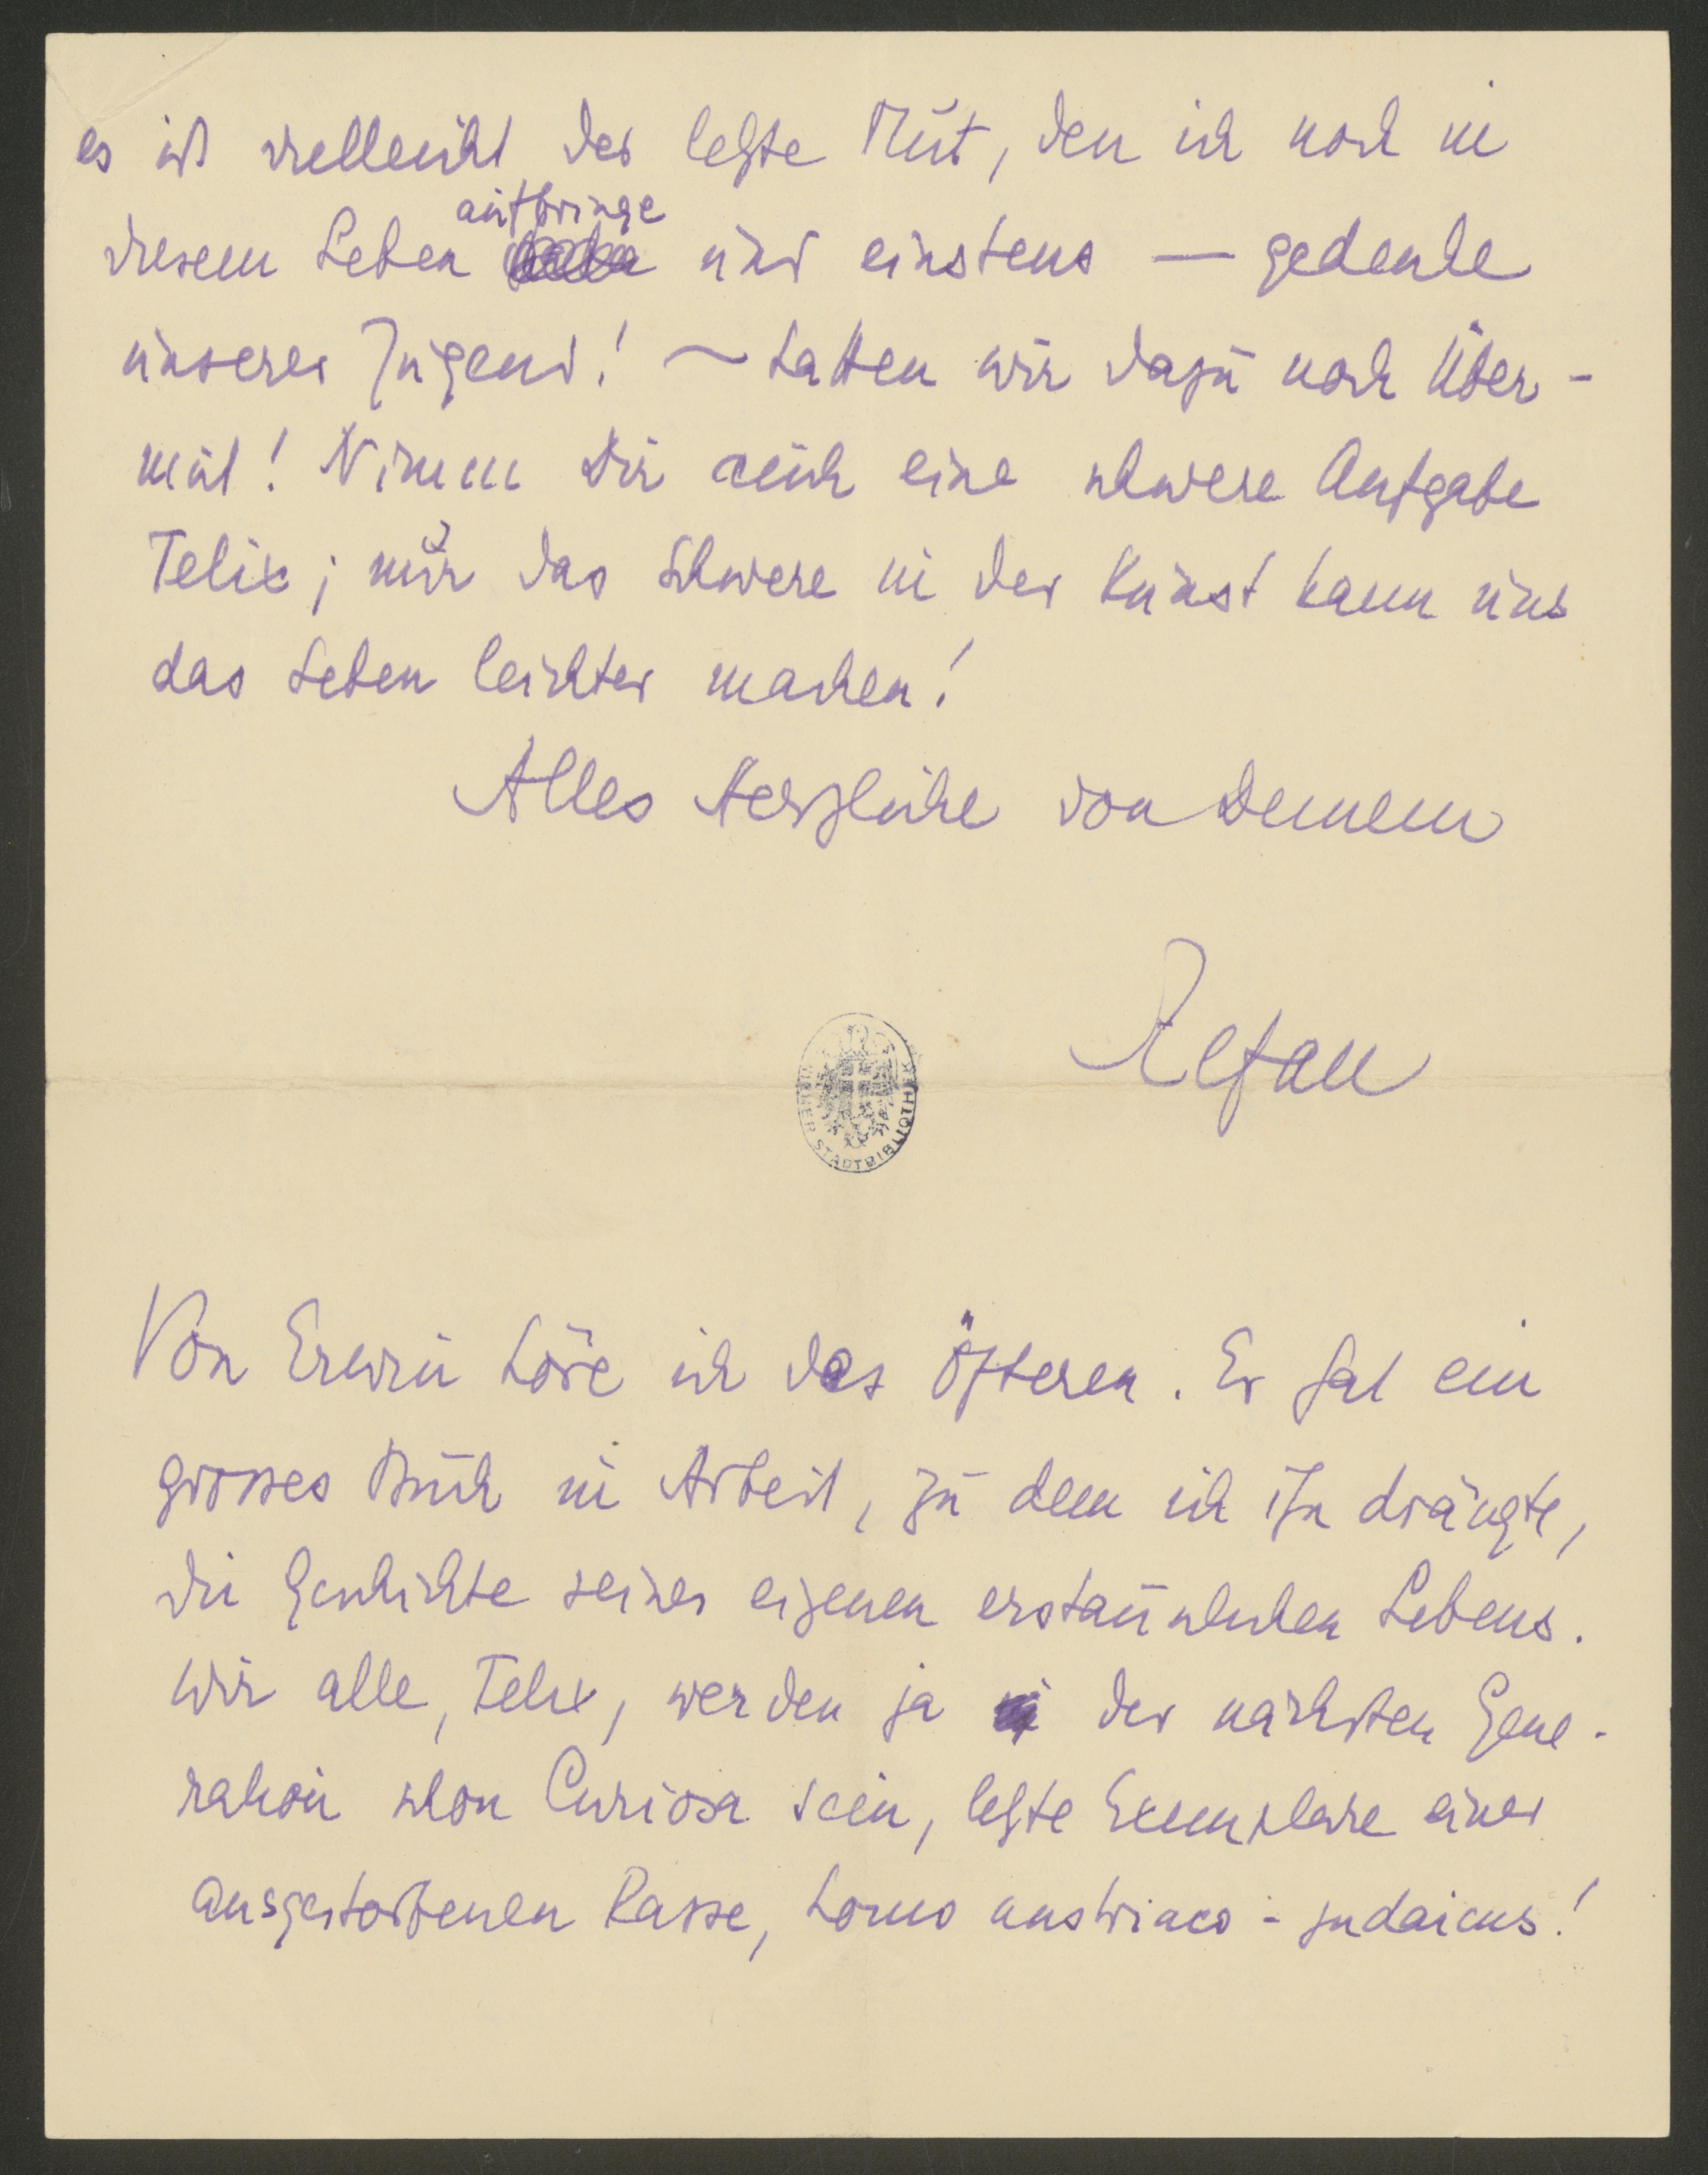 es ist vielleicht der letzte Mut, den ich noch in
aufbringe
diesem Leben und einstens — gedenke
unserer Jugend! — hatten wir dazu noch Über-
mut! Nimm Dir auch eine schwere Aufgabe
Felix; nur das Schwere in der Kunst kann uns
das Leben leichter machen!
Alles Herzliche von Deinem
Stefan
WIENER STADTBIBLIOTHEK
Von Erwin höre ich des öfteren. Er hat ein
grosses Buch in Arbeit, zu dem ich ihn drängte,
die Geschichte seines eigenen erstaunlichen Lebens.
Wir alle, Felix, werden ja der nächsten Gene-
ration schon Curiosa sein, letzte Exemplare einer
ausgestorbenen Rasse, homo austriaco-judaicus!